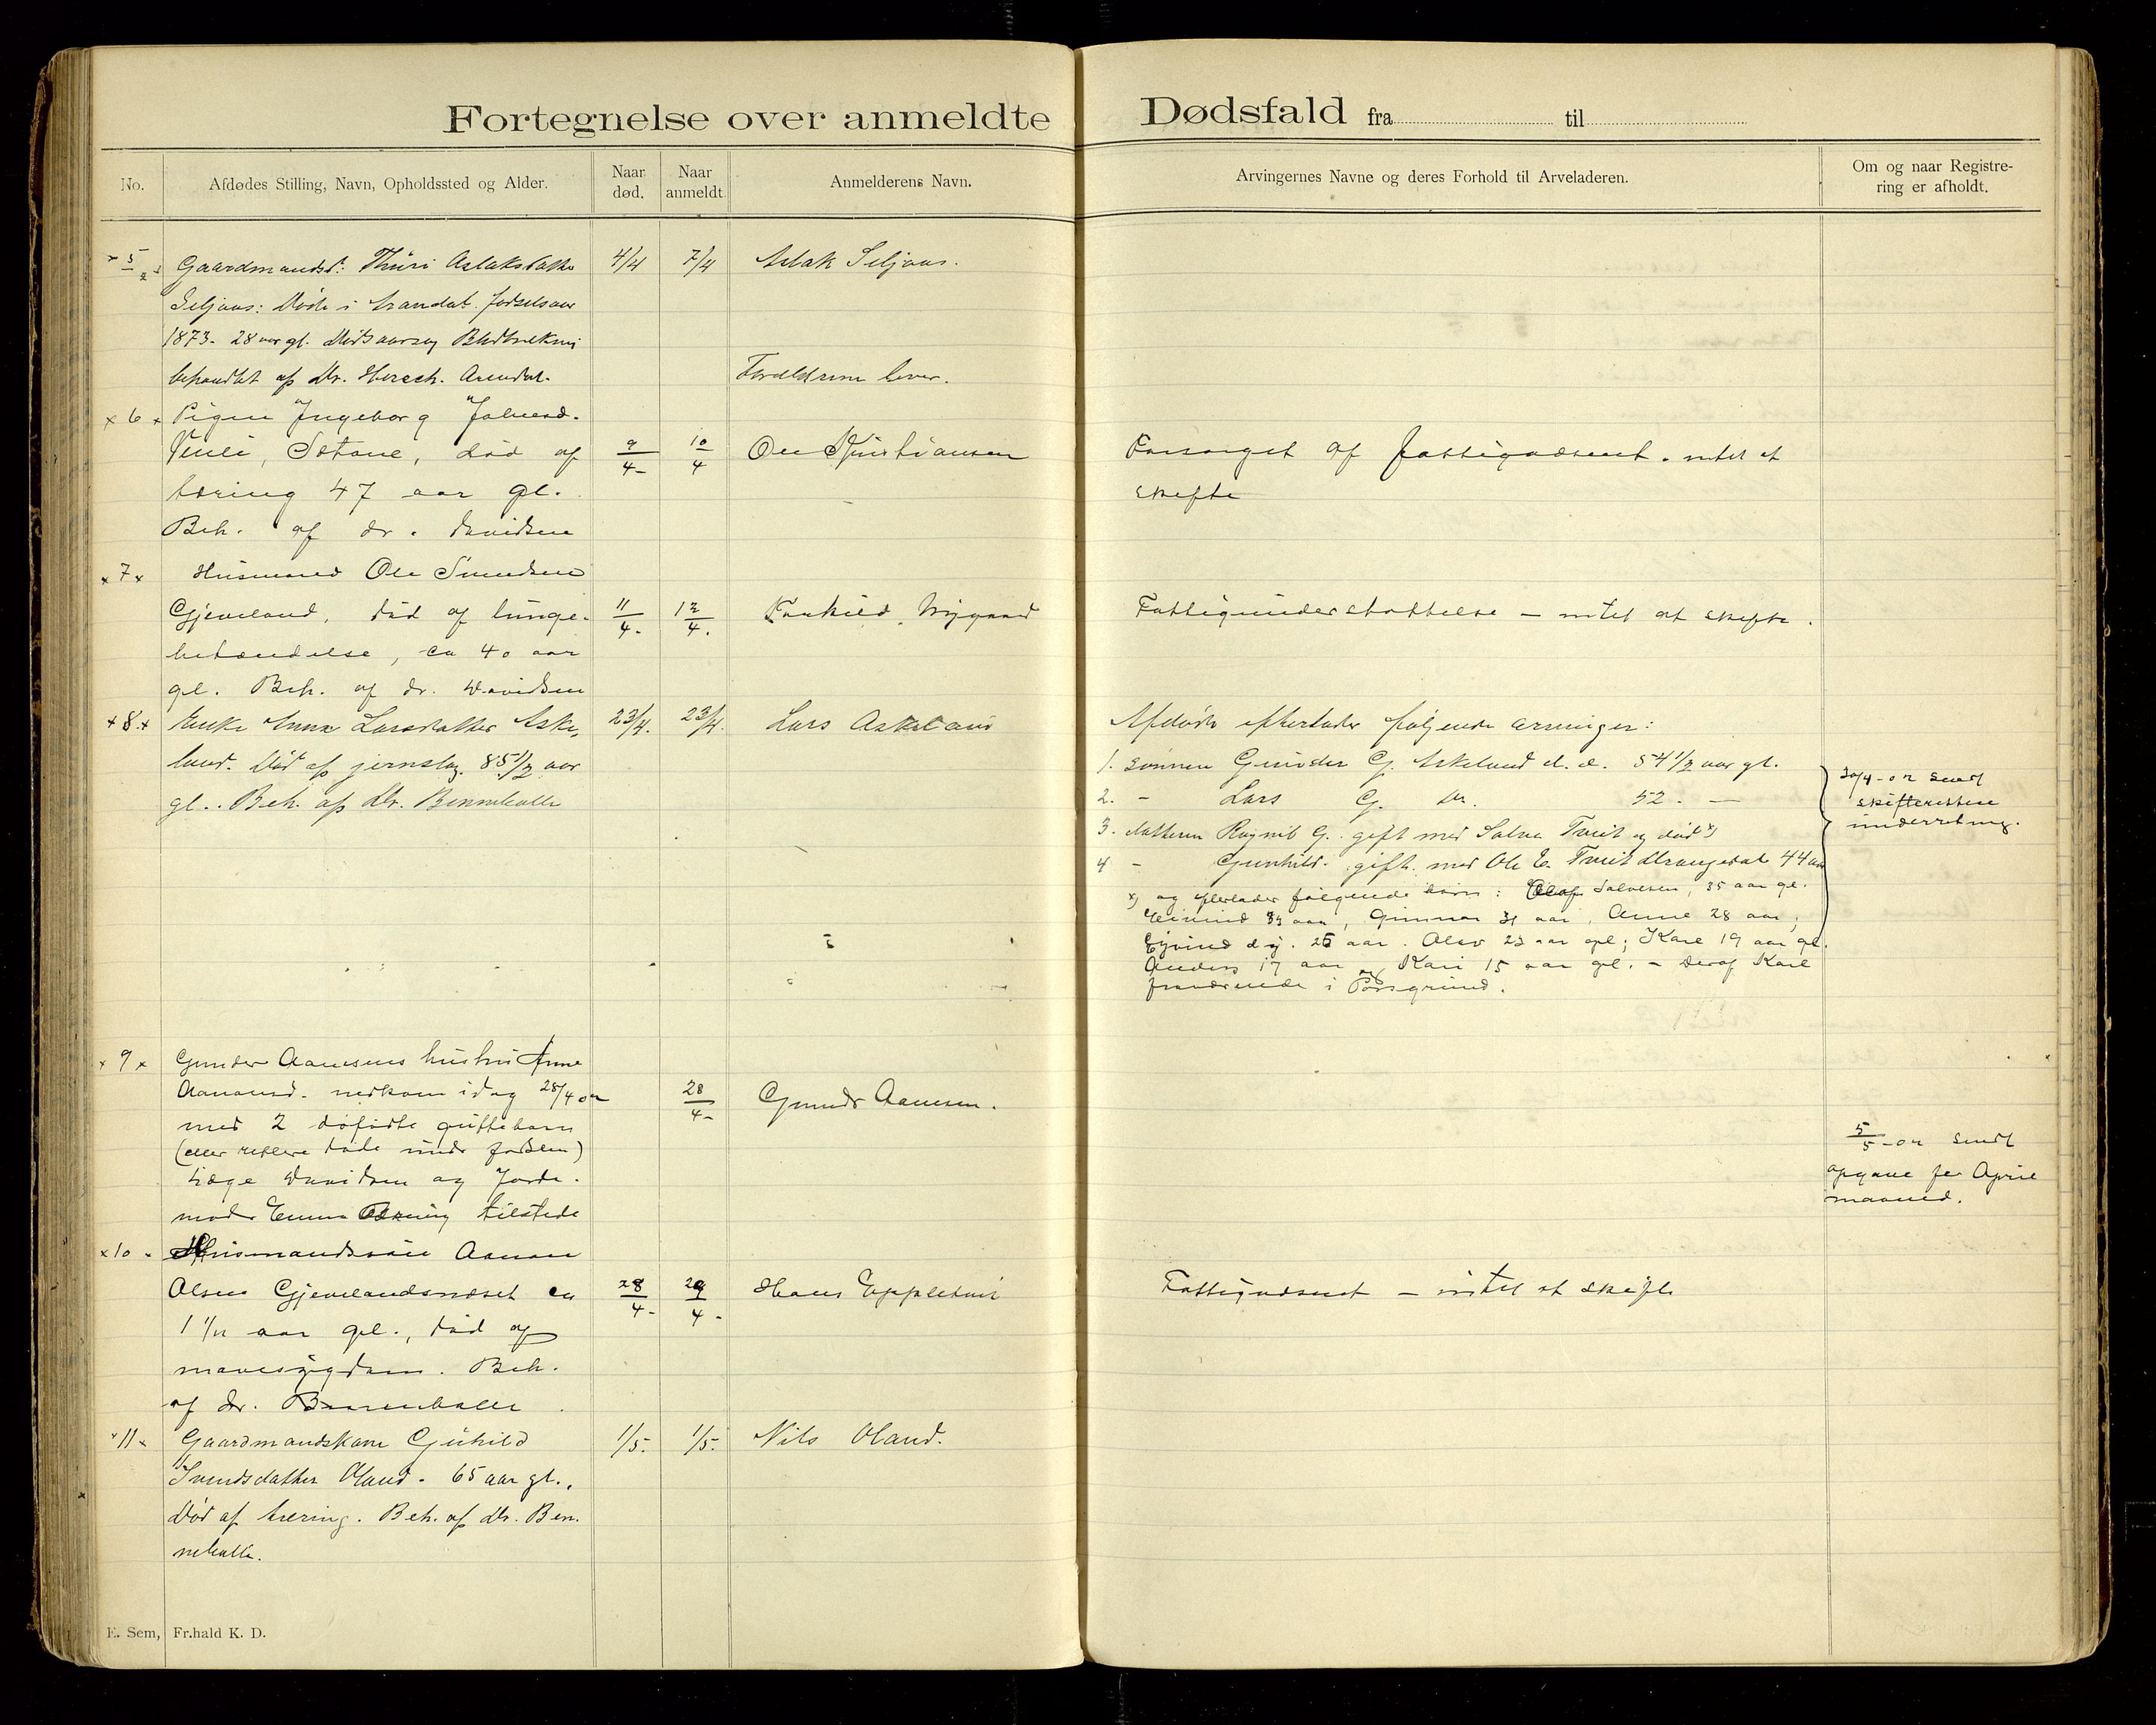 Fortegnelse over anmeldte Dødsfald fra til
No. Afdødes Stilling, Navn, Opholdssted og Alder. Naar død. Naar anmeldt. Anmelderens Navn. Arvingernes Navne og deres Forhold til Arveladeren. Om og naar Registrering er afholdt.
5 Gaardmandsd: Thuri Aslaksdatter 4/4 7/4 Aslak Seljaas.
Seljaas: Døde i Arendal. fødselsaar
1873. 28 aar gl. Dødsaarsag
behandlet af Dr. Hersch. Arendal. Forældrene lever.
x 6 x Pigen Ingeborg
død af 9/4- 10/4 Ole Kristiansen Forsørget af fattigvæsenet. intet at
tæring 47 aar gl. skifte
Beh. af dr. Davidsen
x 7 x Husmand Ole
Gjeveland, død af lunge- 11/4- 12/4. Nygaard Fattigunderstøttelse - intet at skifte.
betændelse, ca 40 aar
gl. Beh. af dr. Davidsen
x 8 x Enke Anna Larsdatter Aske- 23/4. 23/4. Lars Askeland Afdøde efterlader følgende arvinger:
land. Død af jernslag. 85 1/2 aar 1. sønnen Gunder G. Askeland d. e. 54 1/2 aar gl.
gl.. Beh. af Dr. Bennehalle 2. - Lars G. Do. 52. -
3. datteren Ragnil G. gift med Salve Tveit og død x)
4 - Gunhild. gift. med Ole E. Tveit Drangedal 44 aar
30/4-02 sendt
skifteretten
underretning.
x) og efterlader følgende børn: Olaf Salvesen, 35 aar gl.
aar, Gunnar 31 aar, Anne 28 aar,
Eivind d y. 25 aar. Olav 23 aar gl; Karl 19 aar gl.
Anders 17 aar og Kari 15 aar gl. - Deraf Karl
fraværende i Porsgrund.
x 9 x Gunder Aanesens hustru Anne
nedkom idag 28/4 02 28/4- Gunder Aanesen.
med 2 dødfødte guttebarn
(eller rettere døde under fødselen)
Læge Davidsen og Jorde-
moder Emma tilstede
5/5-02 sendt
opgave for April
maaned.
x 10 - Husmandssøn Aanon
Olsen Gjevelandsnæset ca 28/4- 29/4- Hans Eppletveit Fattigvæsenet - intet at skifte
1 1/12 aar gl., død af
mavesygdom. Beh.
af dr. Bennehalle.
x 11 x Gaardmandskone Gunhild 1/5. 1/5. Nils Oland.
Svendsdatter Oland. 65 aar gl.,
Død af tæring. Beh. af Dr. Ben-
nehalle.
E. Sem, Fr.hald K. D.